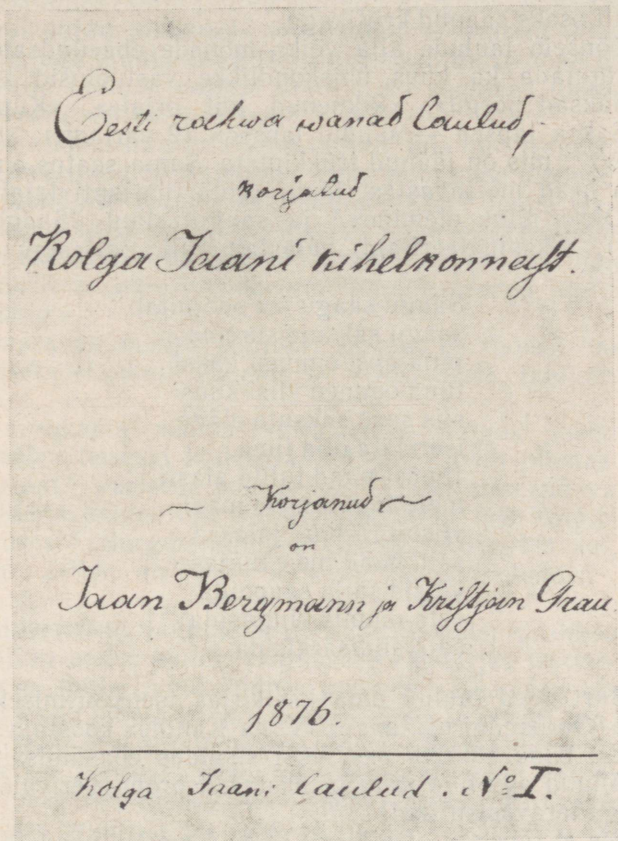 Eesti rahwa wanad laulud,
korjatud
Kolga Jaani kihelkonnast.
~ Korjanud ~
on
Jaan Bergmann ja Kristjan Grau.
1876.
Kolga Jaani laulud. No I.